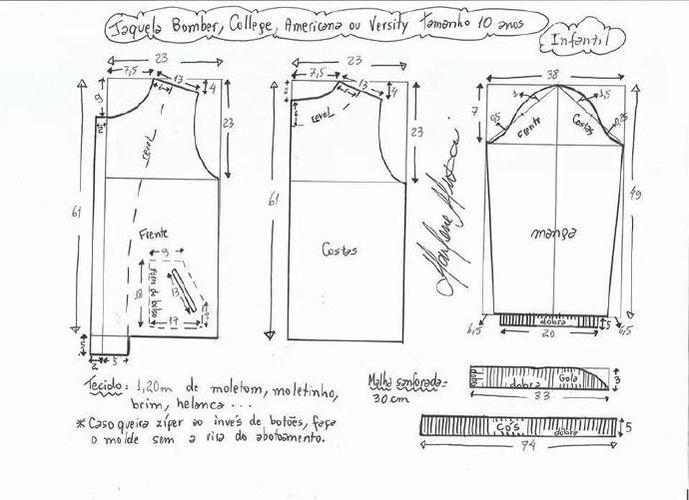 Jaqueta Bomber, College, Americana ou Versity Tamanho 10 anos
Infantil
23
7,5
13
4
9
2
revel
23
61
Frente
9
18
13
17
5
2
5
23
7,5
13
2
4
revel
23
61
Costas
38
7
1,5
0,5
Frente
Costas
49
manga
dobra
5
6,5
20
6,5
Tecido: 1,20m de moletom, moletinho,
brim, helanca ...
* Caso queira zíper ao invés de botões, faça
o molde sem a rila do abotoamento.
Malha sanforada:
30cm
dobra
Gola
3
33
Cós
dobra
5
74